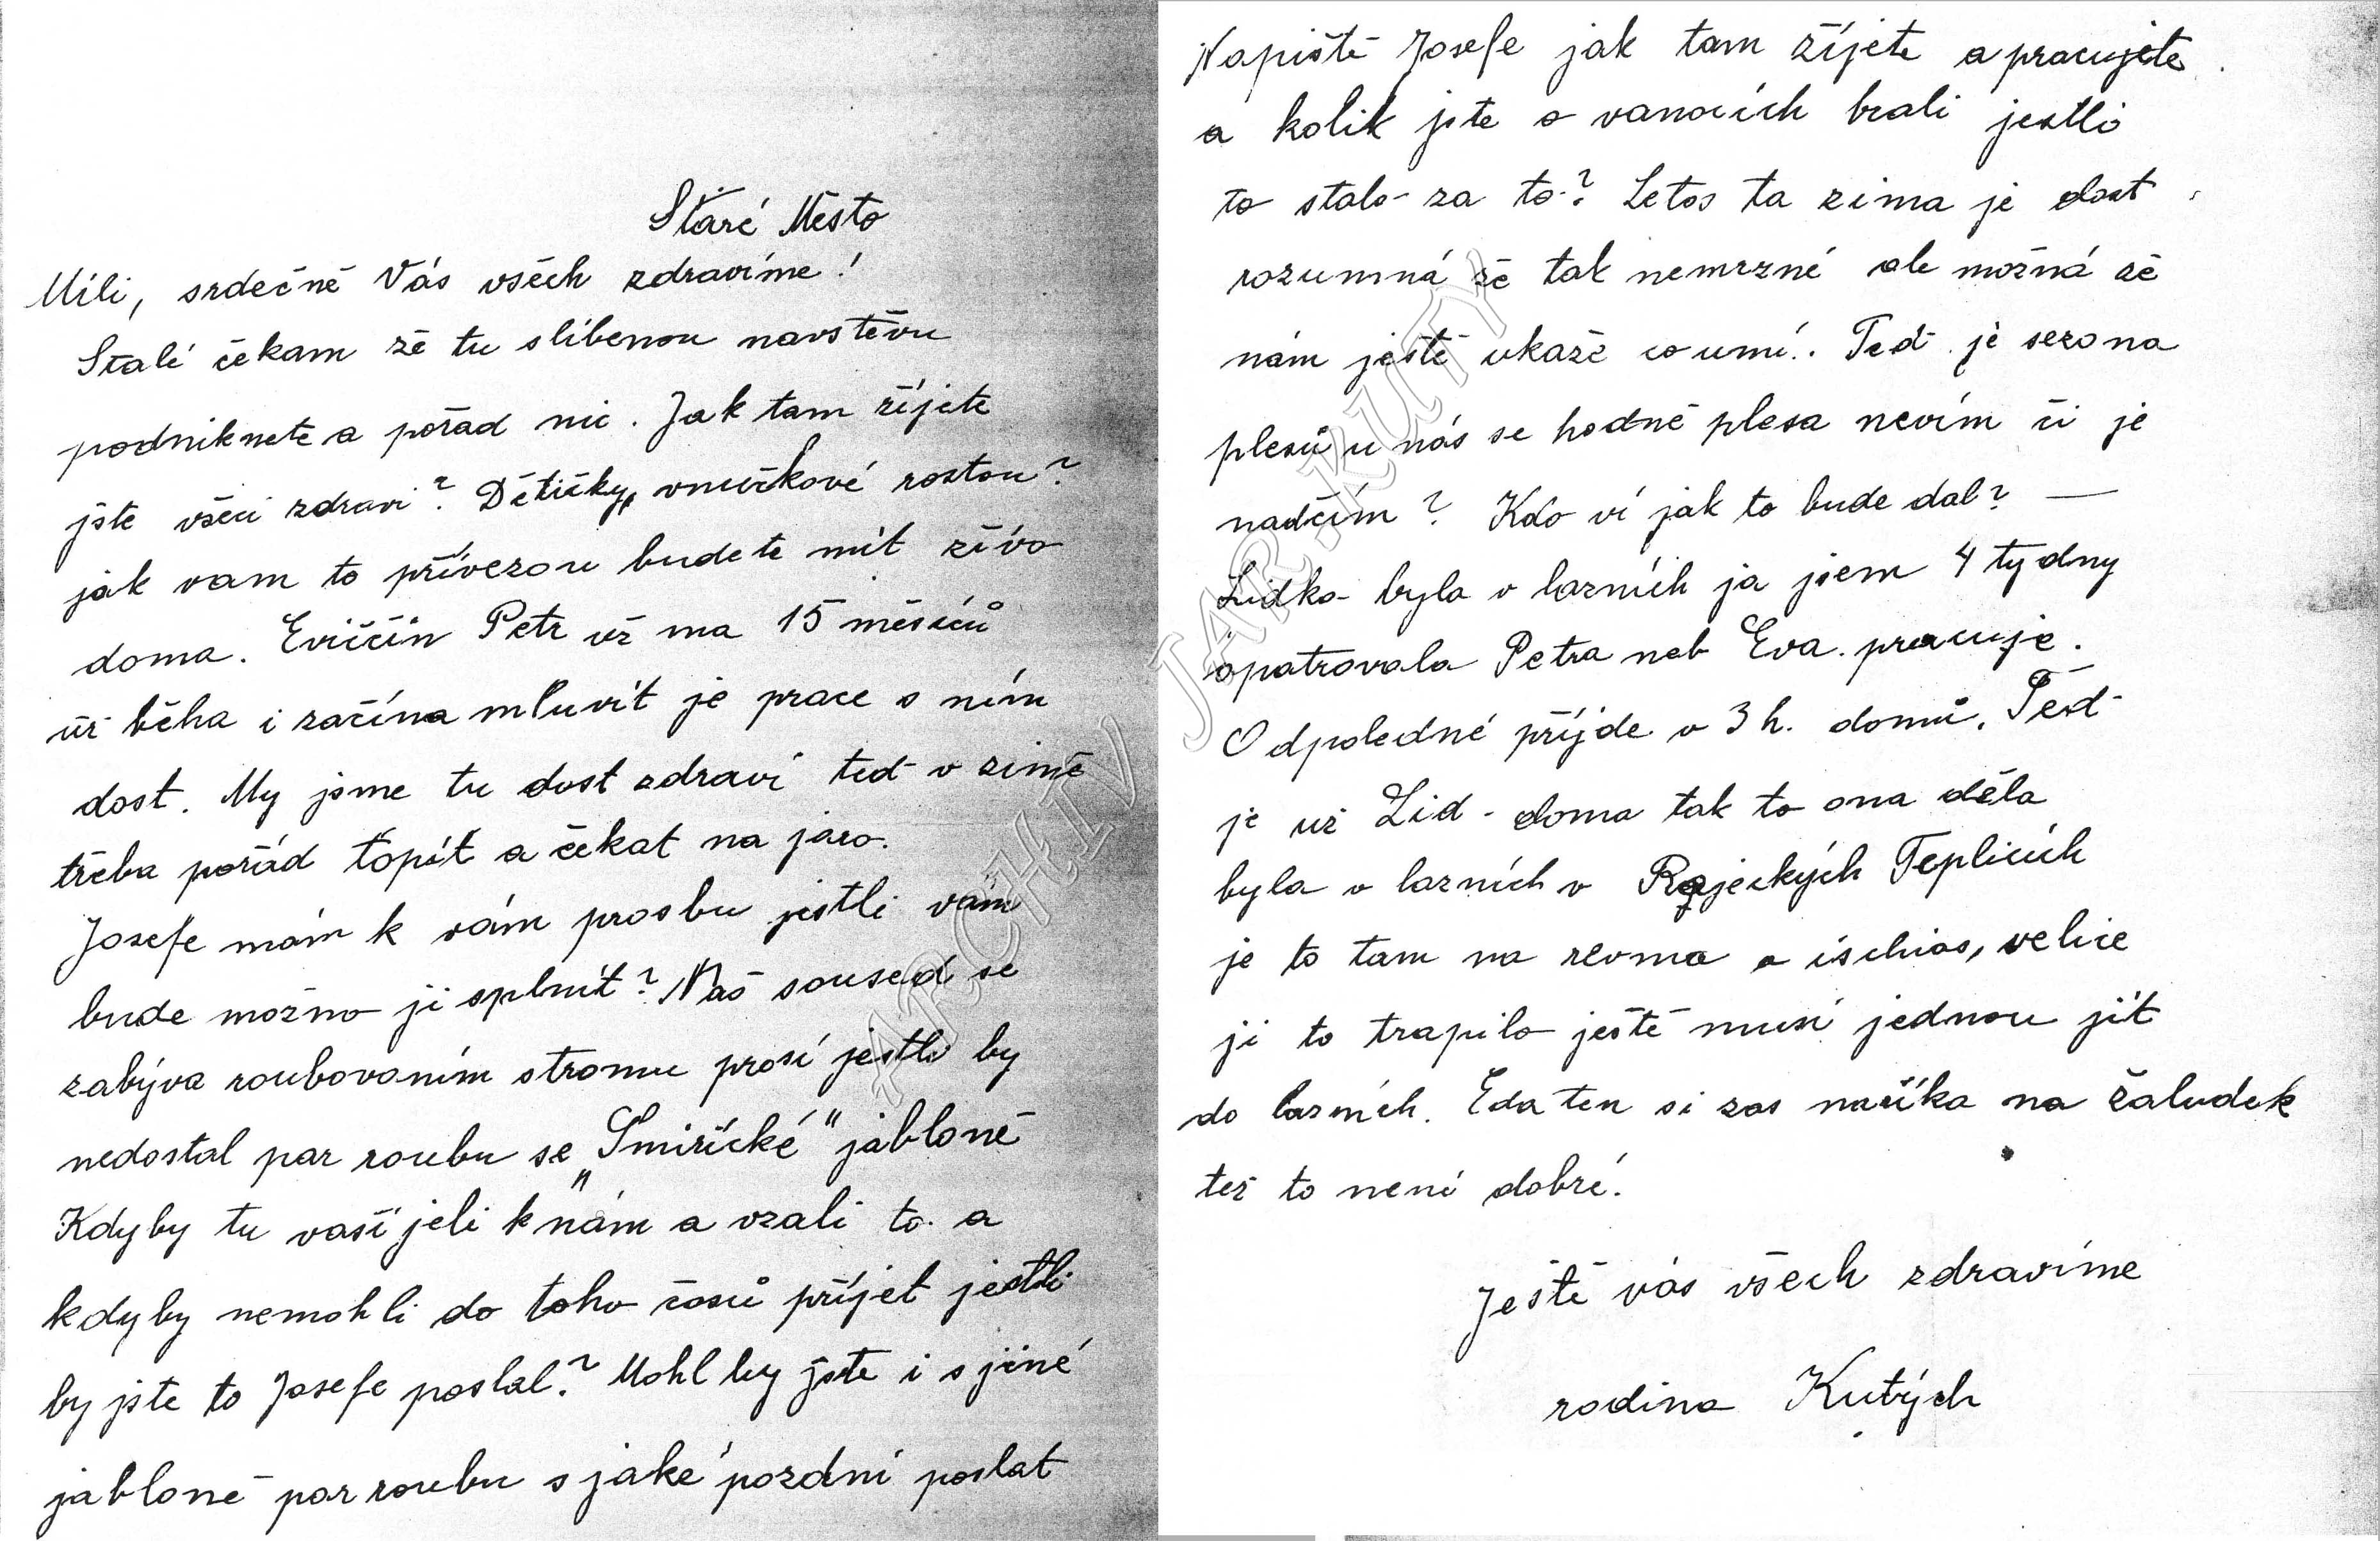 Staré Město
Míli, srdečně Vás všech zdravíme!
Stalé čekam žé tu slibenou navstěvu
podniknete a pořad nic. Jak tam žíjete
jste všeci zdravi? Dětičky, vnučkové rostou?
jak vam to přivezou budete mít žívo
doma. Eviččin Petr už ma 15 měsíců
už běha i začína mluvít je prace s ním
dost. My jsme tu dost zdraví teď v zimě
třeba pořád topít a čekat na járo.
Josefe mám k vám prosbu jestli vám
bude možno ji splnít? Náš soused se
zabýva roubovaním stromu prosí jestli by
nedostal par roubu se „Smiřické" jabloně
Kdyby tu vaší jeli k nám a vzali to a
kdyby nemohli do toho časů příjet jestli
by jste to Josefe poslal? Mohl by jste i s jiné
jabloně par roubu s jaké pozdní poslat
Napiště Josefe jak tam žíjete a pracujete
a kolik jste o vanocích brali jestli
to stalo za to? Letos ta zima je dost
rozumná žé tak nemrzné ale možná žé
nám jestě ukažé co umí. Teď je sezona
plesů u nás se hodně plesa nevím či je
nadčím? Kdo ví jak to bude dal? —
Lidka byla v lazních ja jsem 4 tydny
opatrovala Petra neb Eva pracuje.
Odpoledné příjde v 3 h. domů. Teď
je už Lid - doma tak to ona děla
byla v lazních v Rajeckých Teplicích
je to tam na revma a ischias, velice
ji to trapilo ještě musí jednou jít
do lazních. Eda ten si zas naříka na žaludek
též to není dobré.
Jestě vás všech zdravíme
rodina Kutých
ARCHIV JAR.KUTÝ